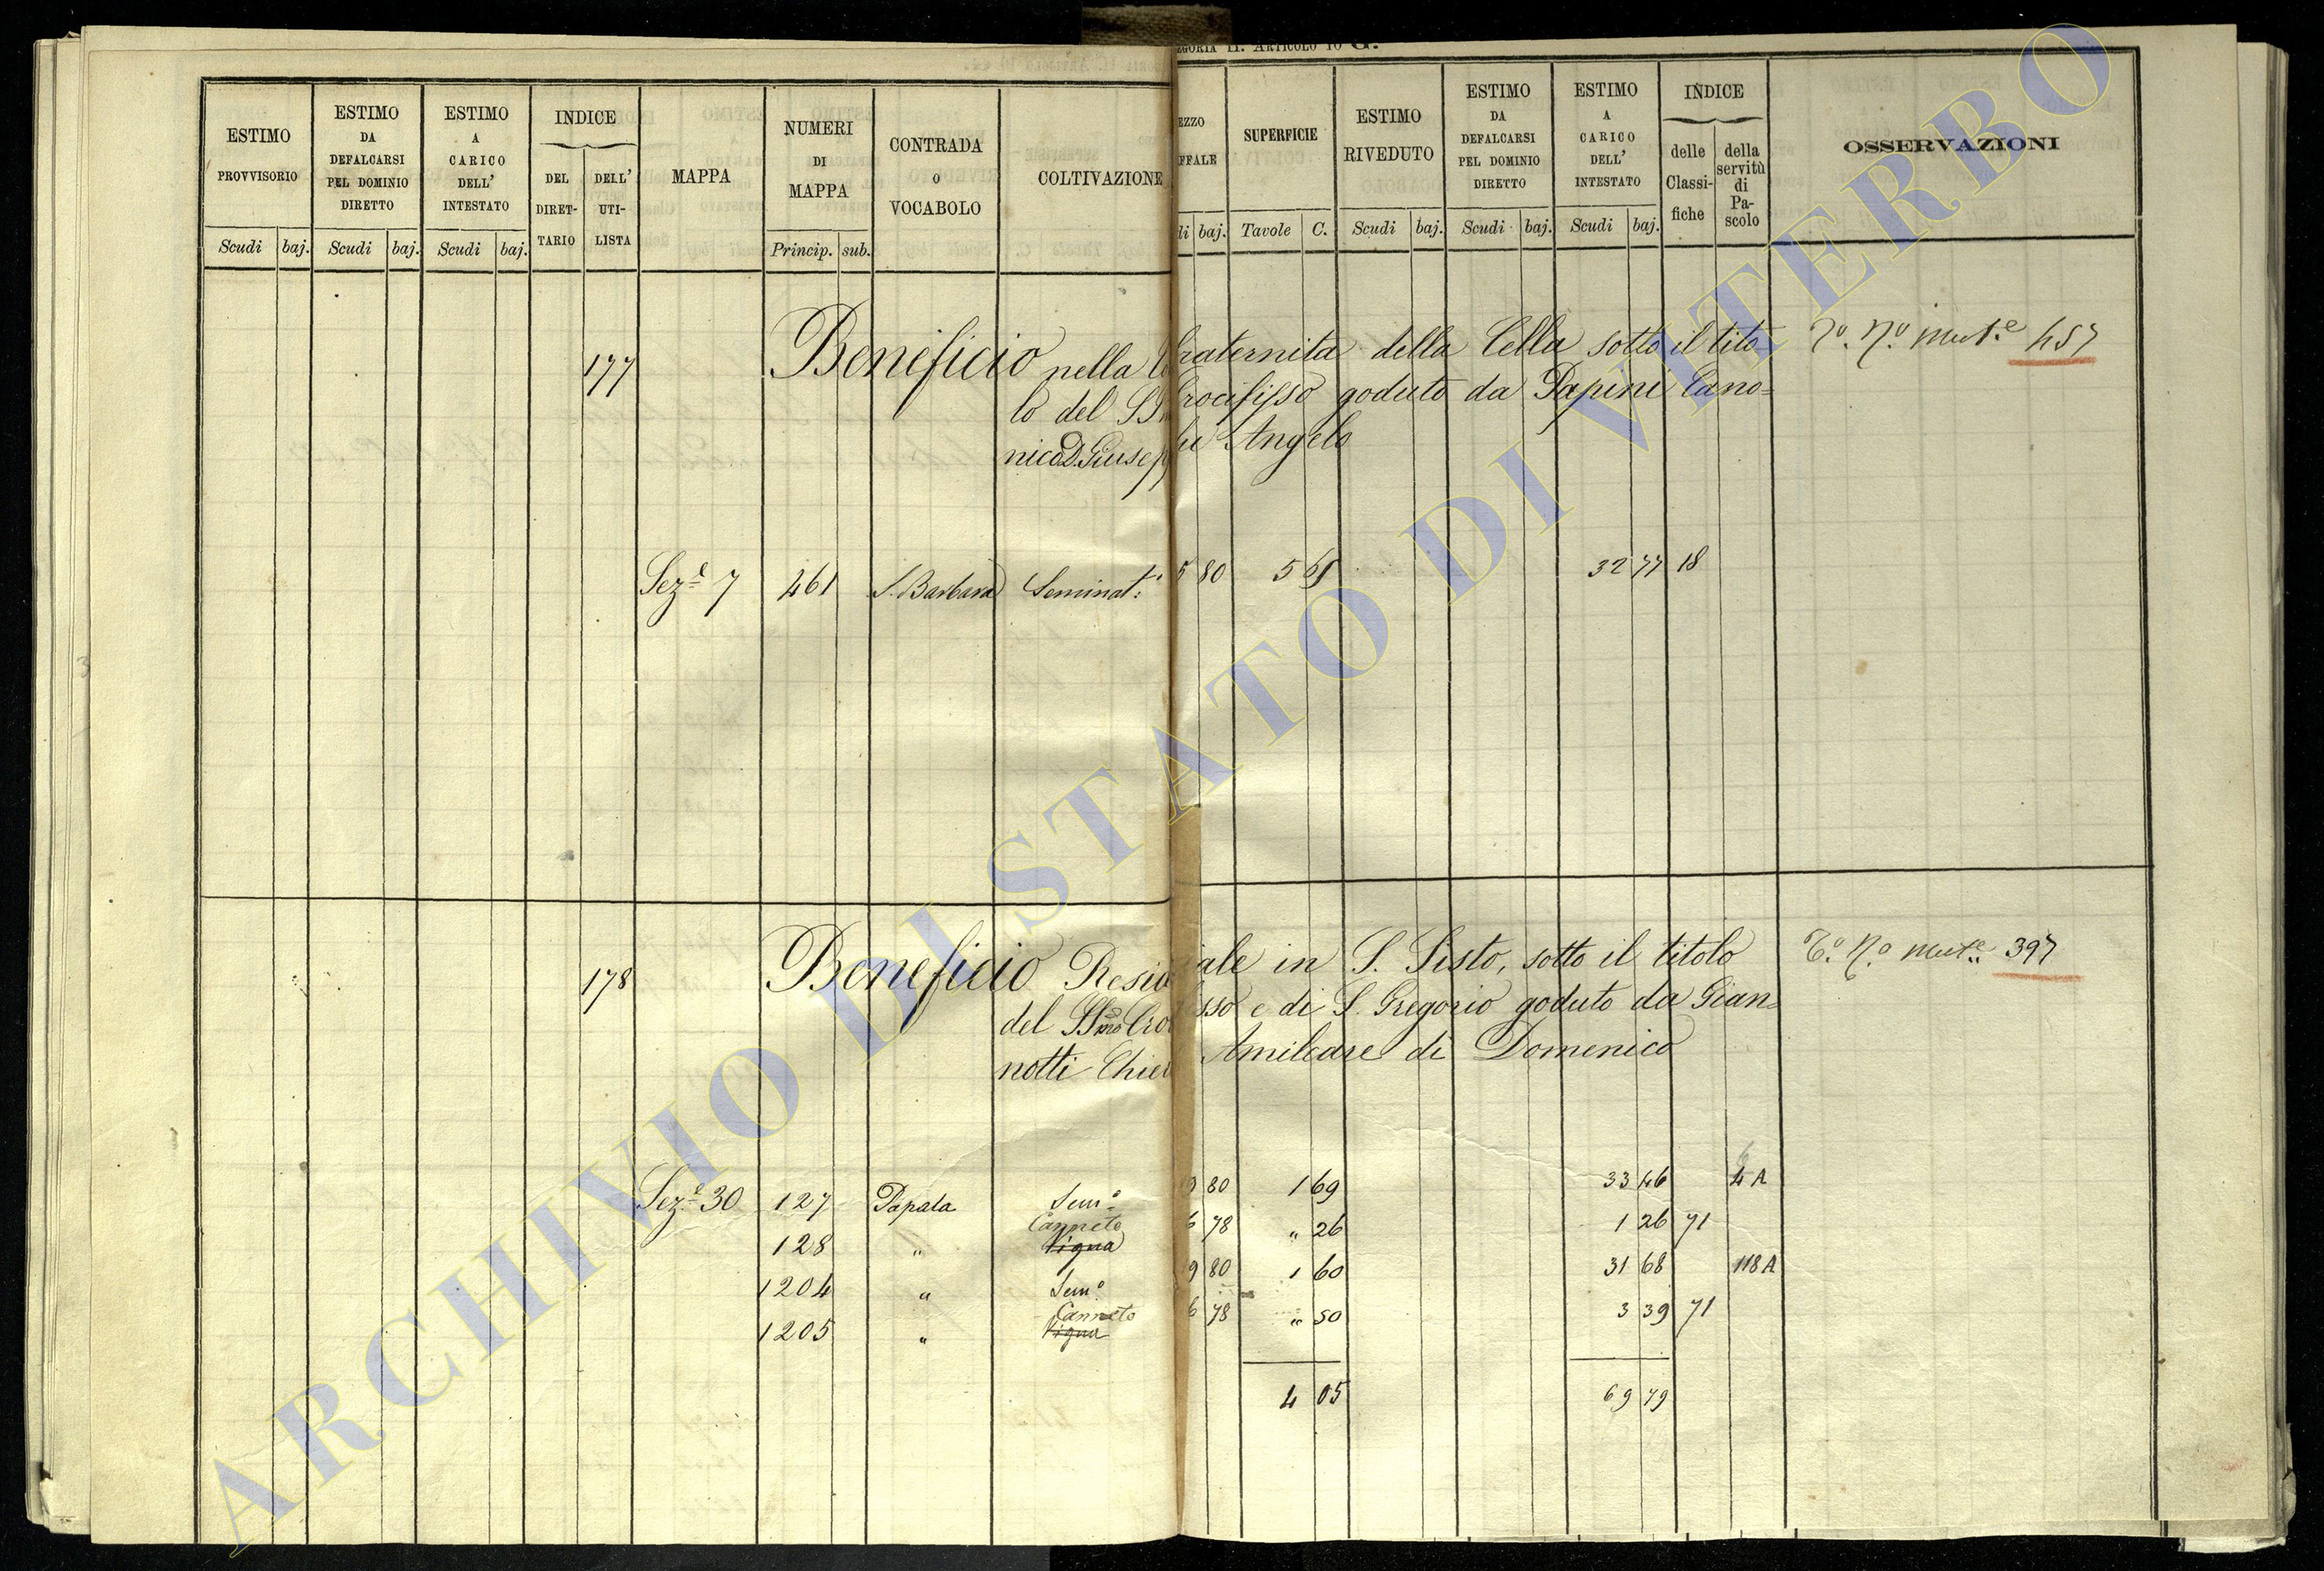 EGORIA II. ARTICOLO 10 G.
ESTIMO PROVVISORIO
ESTIMO DA DEFALCARSI PEL DOMINIO DIRETTO
ESTIMO A CARICO DELL' INTESTATO
INDICE
DEL DIRET-TARIO
DELL' UTI-LISTA
MAPPA
NUMERI DI MAPPA
CONTRADA O VOCABOLO
COLTIVAZIONE
EZZO FFALE
SUPERFICIE
ESTIMO RIVEDUTO
ESTIMO DA DEFALCARSI PEL DOMINIO DIRETTO
ESTIMO A CARICO DELL' INTESTATO
INDICE
delle Classi-fiche
della servitù di Pa-scolo
OSSERVAZIONI
Scudi baj. Scudi baj. Scudi baj. Princip. sub.
di baj. Tavole C. Scudi baj. Scudi baj. Scudi baj.
177 Beneficio nella Co raternita della Cella sotto il tito-
lo del SS rocifisso goduto da Papini Cano=
nico D. Giusep pe Angelo
Sez.e 7 461 S. Barbara Seminat.o 5 80 5 61 32 77 18
178 Beneficio Resid iale in S. Sisto, sotto il titolo To. No. mut.e 397
del SSmo Cro isso e di S. Gregorio goduto da Gian=
notti Chier Amilcare di Domenico
Sez.e 30 127 Papala Sem.o 9 80 1 69 33 46 4 A
Canneto
128 " Vigna 6 78 " 26 1 26 71
1204 " Sem.o 9 80 1 60 31 68 118 A
Canneto
1205 " Vigna 6 78 " 50 3 39 71
4 05 69 79
ARCHIVIO DI STATO DI VITERBO